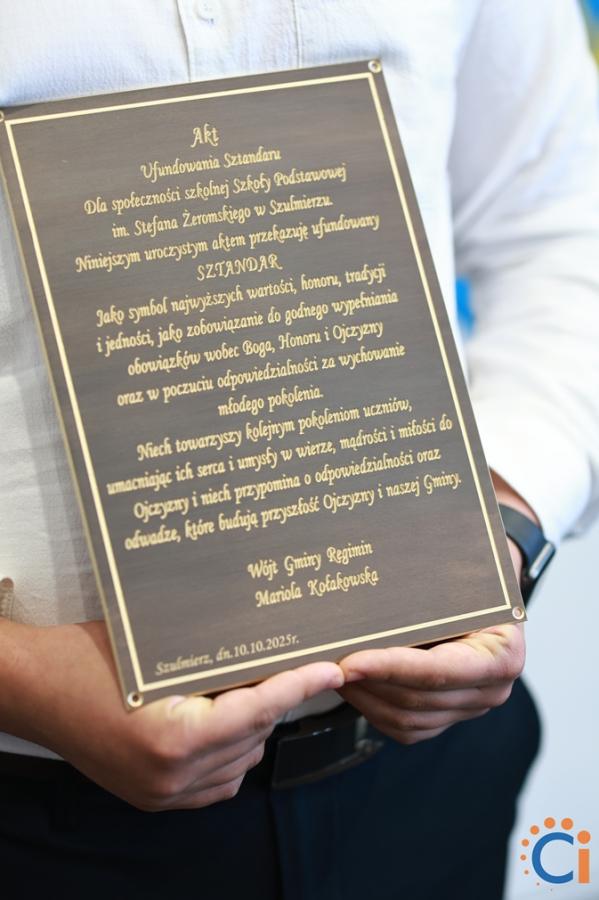 Akt
Ufundowania Sztandaru
Dla społeczności szkolnej Szkoły Podstawowej
im. Stefana Żeromskiego w Szulmierzu.
Niniejszym uroczystym aktem przekazuję ufundowany
SZTANDAR
Jako symbol najwyższych wartości, honoru, tradycji
i jedności, jako zobowiązanie do godnego wypełniania
obowiązków wobec Boga, Honoru i Ojczyzny
oraz w poczuciu odpowiedzialności za wychowanie
młodego pokolenia.
Niech towarzyszy kolejnym pokoleniom uczniów,
umacniając ich serca i umysły w wierze, mądrości i miłości do
Ojczyzny i niech przypomina o odpowiedzialności oraz
odwadze, które budują przyszłość Ojczyzny i naszej Gminy.
Wójt Gminy Regimin
Mariola Kołakowska
Szulmierz, dn.10.10.2025r.
Ci